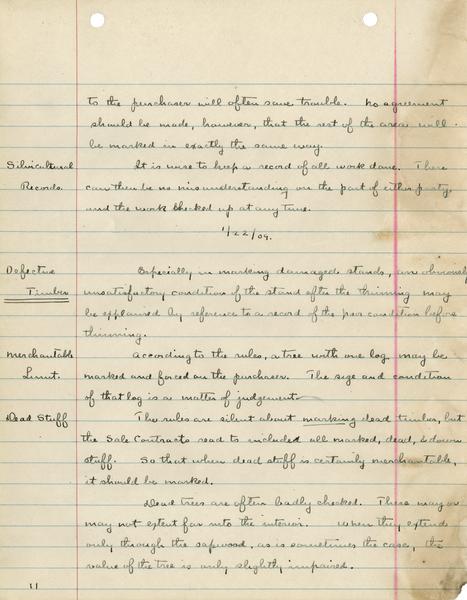 to the purchaser will often save trouble. No agreement
should be made, however, that the rest of the area will
be marked in exactly the same way.
Silvicultural It is wise to keep a record of all work done. There
Records. can then be no misunderstanding on the part of either party,
and the work checked up at any time.
1/22/09.
Defective Especially in marking damaged stands, an obviously
Timber unsatisfactory condition of the stand after the thinning may
be explained by reference to a record of the poor condition before
thinning.
Merchantable According to the rules, a tree with one log may be
Limit. marked and forced on the purchaser. The size and condition
of that log is a matter of judgement.
Dead Stuff The rules are silent about marking dead timber, but
the Sale Contracts read to included all marked, dead, & down
stuff. So that when dead stuff is certainly merchantable,
it should be marked.
Dead trees are often badly checked. These may or
may not extent far into the interior. When they extend
only through the sapwood, as is sometimes the case, the
value of the tree is only slightly impaired.
11